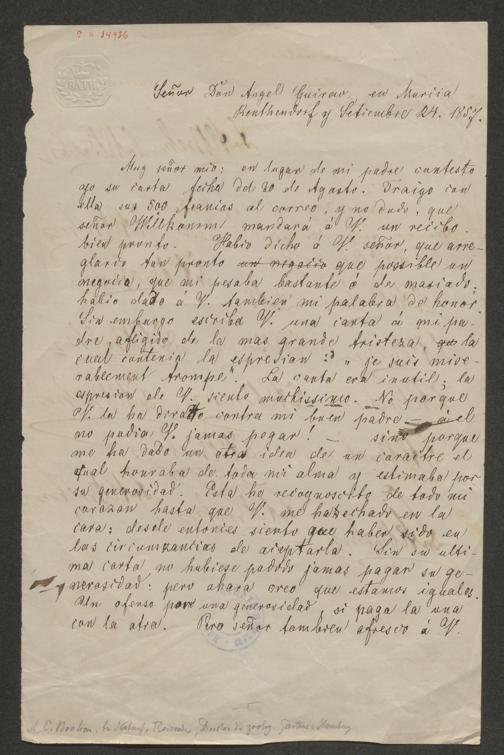 Señor Don Angel Guirao, en Murcia
Renthendorf y Setiembre 24. 1857.
Muy señor mio: en lugar de mi padre contesto
yo su carta fecha del 20 de Agosto. Traigo con
ella sus 500 francias al correo, y no dudo, que
señor Willkomm mandará á V. un recibo
bien pronto. Habio dicho á V. señor, que arre-
glario tan pronto un negocio que possible un
negocio, que mi pesaba bastante ó de masiado;
habio dado á V. tambien mi palabra de honor.
Sin embargo escribó V. una carta á mi pa-
dre, afligido de la mas grande tristeza, la
cual contenia la espresian: "je suis mise-
rablement trompé". La carta era inutil; la
espresion de V. siento muchissimo. No porque
V. la ha contra mi buen padre — á el
no podia V. jamas pegar! — sino porque
me ha dado un otra idea de un caractre el
qual honraba de toda mi alma y estimaba por
su generosidad. Esta he de todo mi
corazan hasta que V. me ha echado en la
cara: desde entonces siento que haber sido en
las circunzancias de aceptarla. Sin su ulti-
ma carta no hubiese podido jamas pagar su ge-
nerosidad: pero ahara creo que estamos iguales.
Un ofenso por una generosidad, si paga la una
con la otra. Pero señor tambien afresco á V.